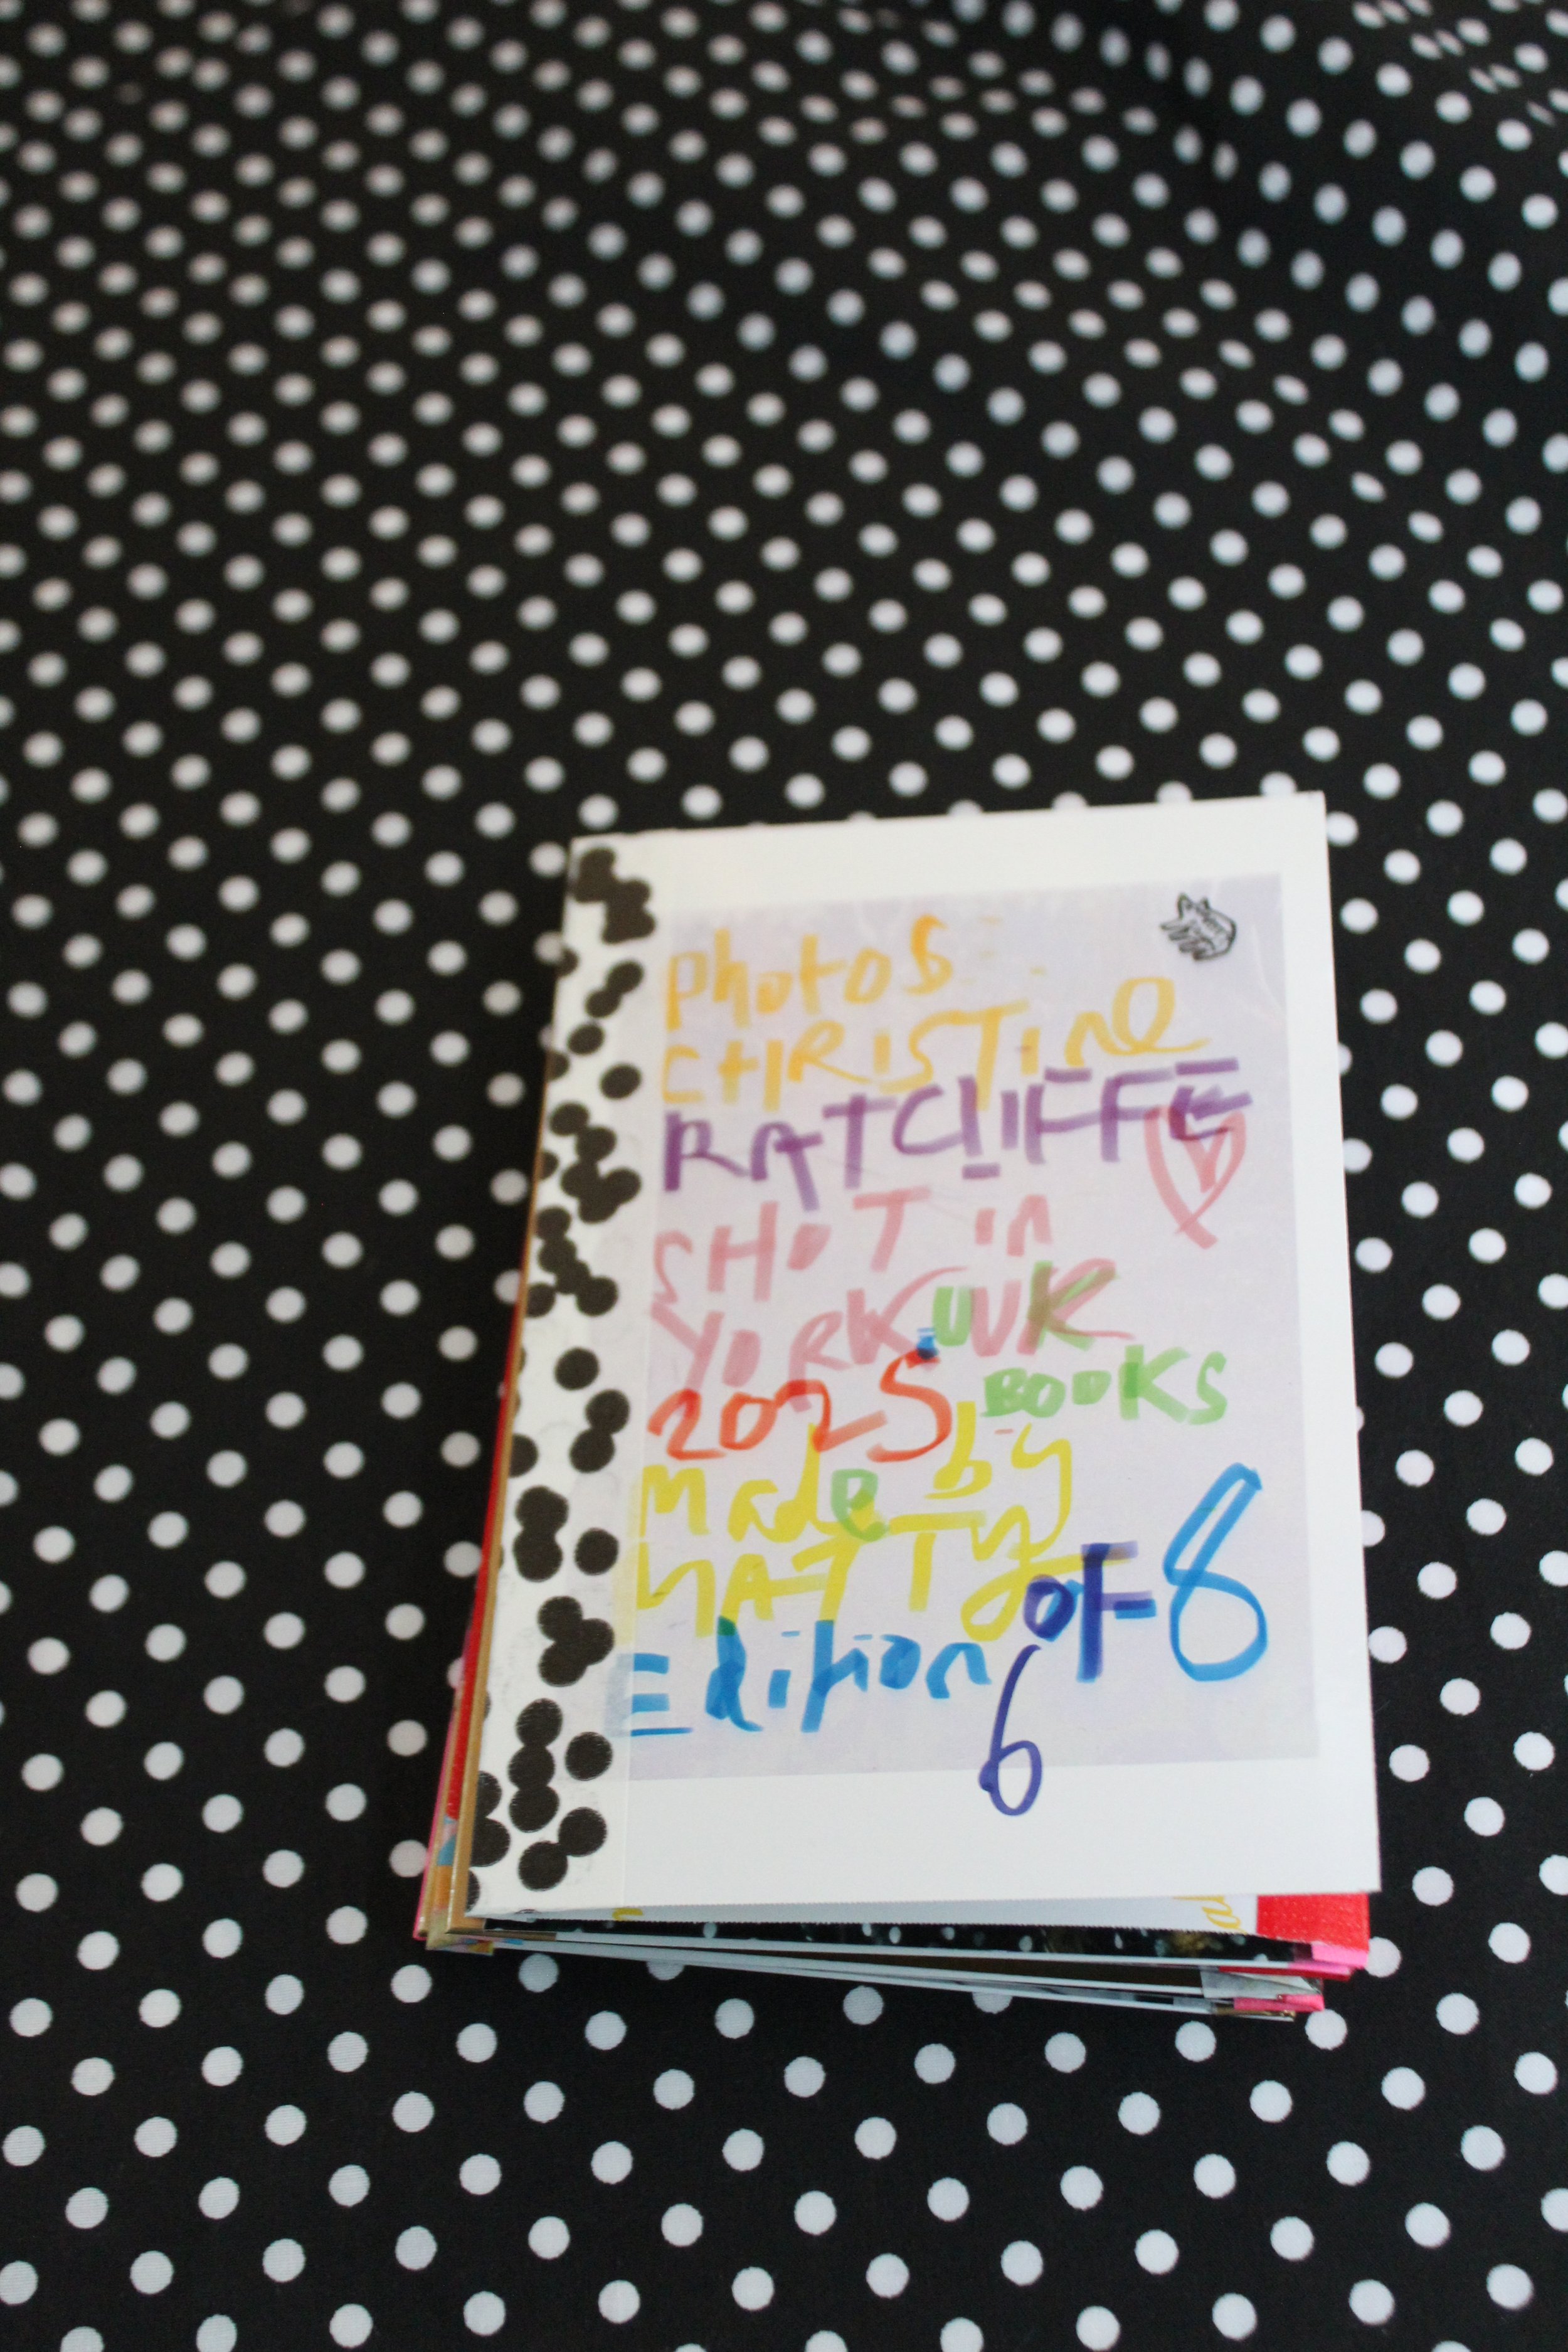 Photos
CHRISTINE
RATCLIFFE
SHOT in
YORK UK
2025 BOOKS
Made by
MATTY
Edition 6 of 8